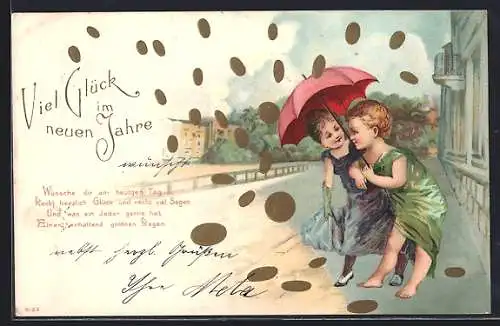 Viel Glück
im
neuen Jahre
wünscht
Wünsche dir am heutigen Tag
Recht herzlich Glück und recht viel Segen
Und was ein Jeder gerne hat
Einen anhaltend goldnen Regen.
nebst herzl. Grüßen
Ihre Meta